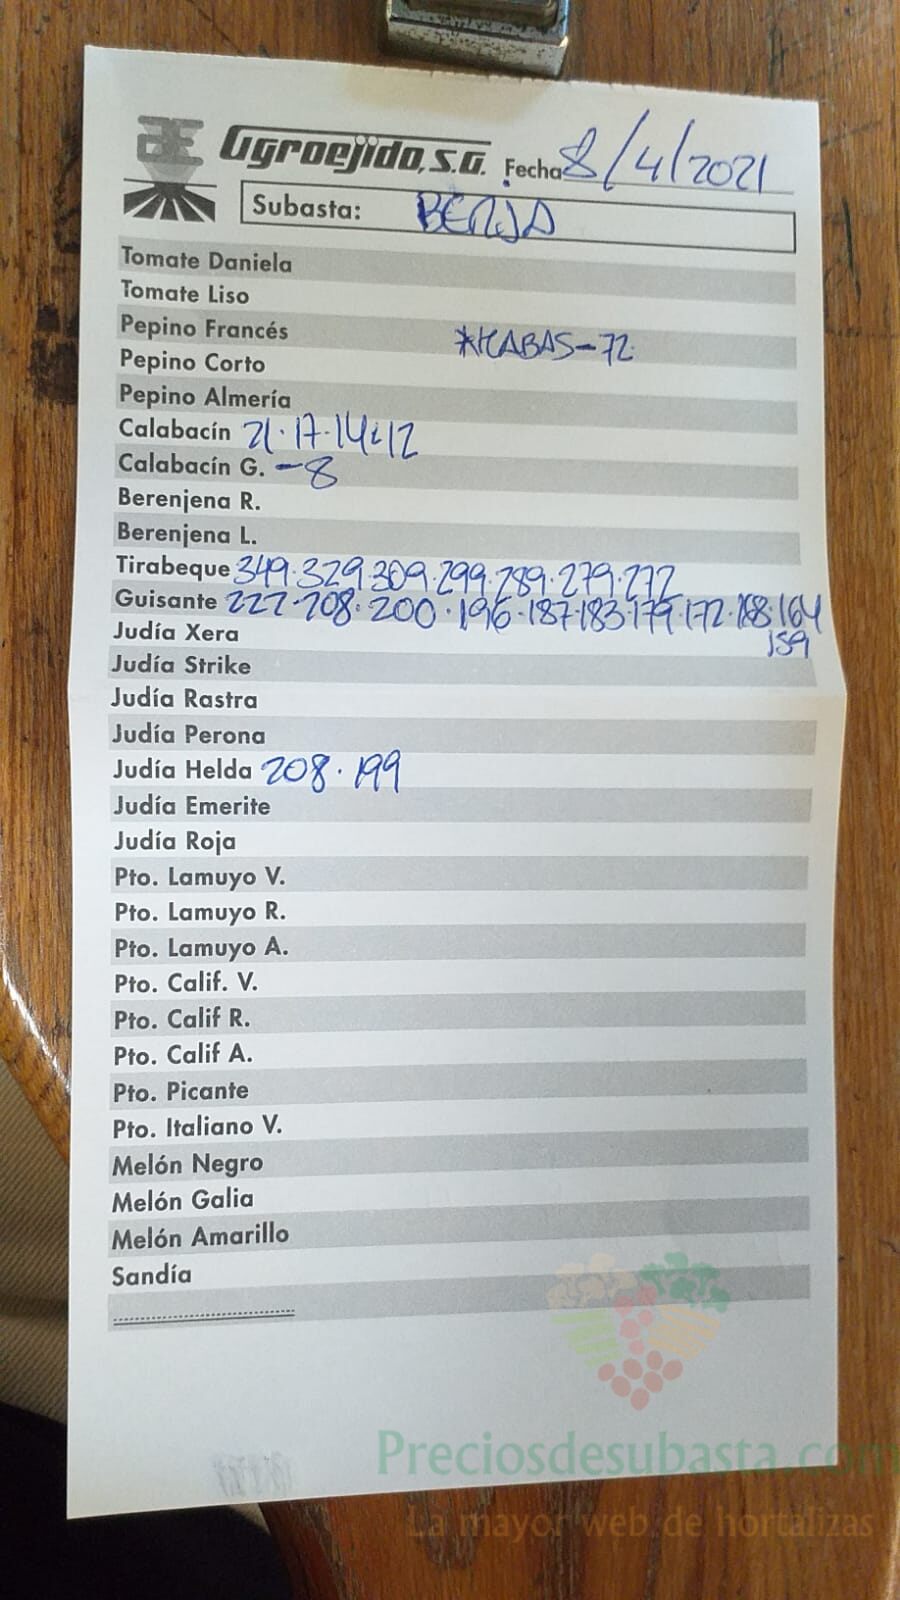 AE Agroejido, S.A. Fecha 8/4/2021
Subasta: BERJA
Tomate Daniela
Tomate Liso
Pepino Francés *HABAS-72
Pepino Corto
Pepino Almería
Calabacín 21·17·14·12
Calabacín G. -8
Berenjena R.
Berenjena L.
Tirabeque 349·329·309·299·289·279·272
Guisante 222·208·200·196·187·183·179·172·168·164
159
Judía Xera
Judía Strike
Judía Rastra
Judía Perona
Judía Helda 208·199
Judía Emerite
Judía Roja
Pto. Lamuyo V.
Pto. Lamuyo R.
Pto. Lamuyo A.
Pto. Calif. V.
Pto. Calif R.
Pto. Calif A.
Pto. Picante
Pto. Italiano V.
Melón Negro
Melón Galia
Melón Amarillo
Sandía
Preciosdesubasta.com
La mayor web de hortalizas